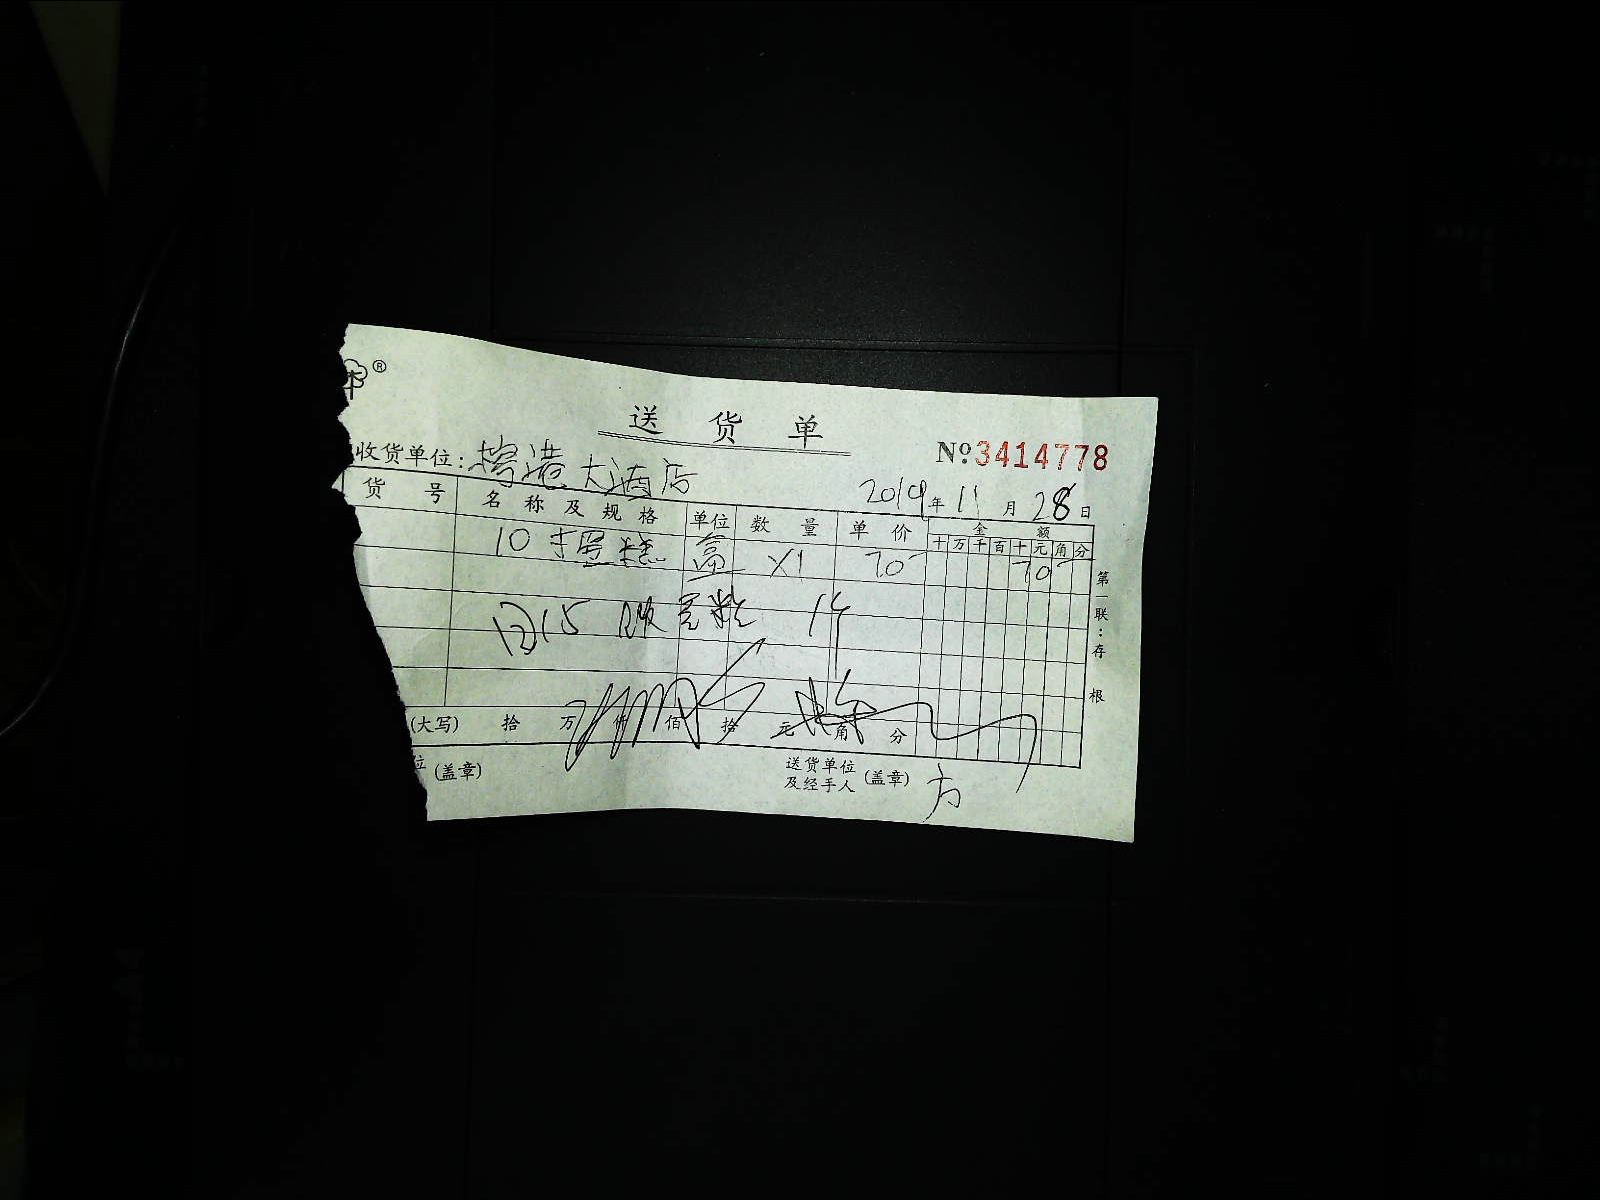 ®
送货单
№3414778
收货单位: 港大酒店
2019年11月28日
货号 名称及规格 单位 数量 单价 金额
十万千百十元角分
10寸蛋糕 盒 X1 70 70
第一联:存根
(大写) 拾 万 仟 佰 拾 元 角 分
位(盖章)
送货单位及经手人(盖章) 方